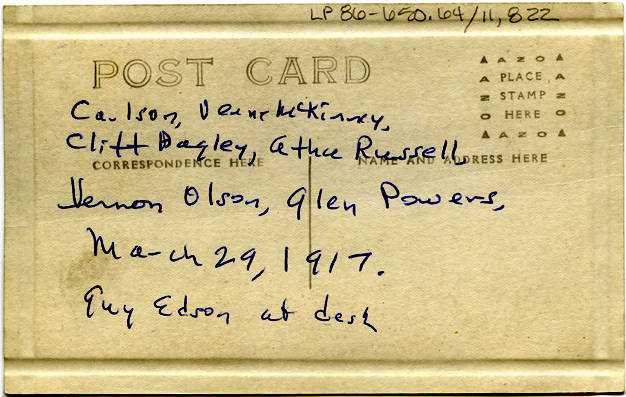 LP 86-650.64/11,822
POST CARD
▲ A Z O ▲
A PLACE A
Z STAMP Z
O HERE O
▲ A Z O ▲
Carlson, Verne McKinney,
Cliff Dagley, Athur Russell,
CORRESPONDENCE HERE
NAME AND ADDRESS HERE
Vernon Olson, Glen Powers,
March 29, 1917.
Guy Edson at desk